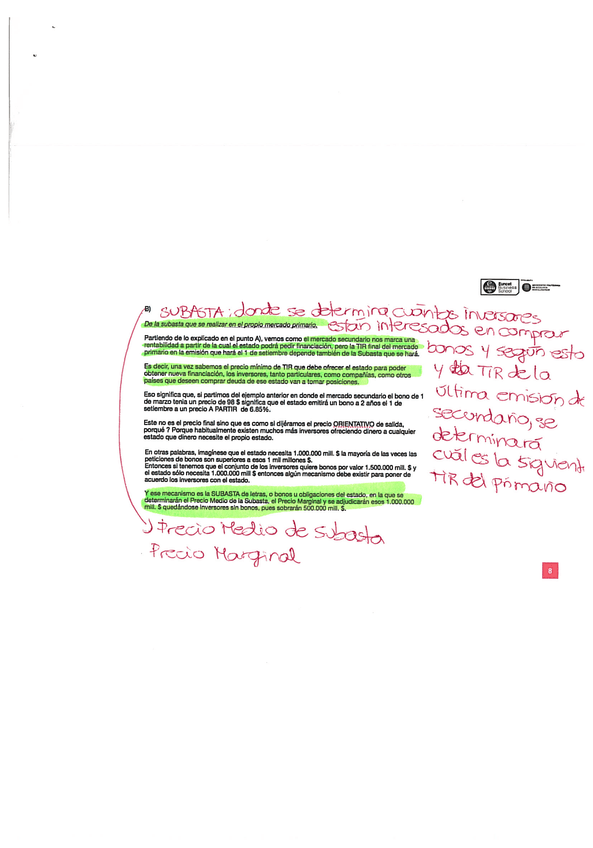 Euncet
Business
School
B) SUBASTA: donde se determina cuántos inversores
están interesados en comprar
bonos y según esto
y la TIR de la
última emisión de
secundario, se
determinará
cuál es la siguient
TIR del primario
De la subasta que se realizar en el propio mercado primario.
Partiendo de lo explicado en el punto A), vemos como el mercado secundario nos marca una
rentabilidad a partir de la cual el estado podrá pedir financiación, pero la TIR final del mercado
primario en la emisión que hará el 1 de setiembre depende también de la Subasta que se hará.
Es decir, una vez sabemos el precio mínimo de TIR que debe ofrecer el estado para poder
obtener nueva financiación, los inversores, tanto particulares, como compañías, como otros
países que deseen comprar deuda de ese estado van a tomar posiciones.
Eso significa que, si partimos del ejemplo anterior en donde el mercado secundario el bono de 1
de marzo tenia un precio de 98 $ significa que el estado emitirá un bono a 2 años el 1 de
setiembre a un precio A PARTIR de 6.85%.
Este no es el precio final sino que es como si dijéramos el precio ORIENTATIVO de salida,
porqué ? Porque habitualmente existen muchos más inversores ofreciendo dinero a cualquier
estado que dinero necesite el propio estado.
En otras palabras, imagínese que el estado necesita 1.000.000 mill. $ la mayoría de las veces las
peticiones de bonos son superiores a esos 1 mil millones $.
Entonces si tenemos que el conjunto de los inversores quiere bonos por valor 1.500.000 mill. $ y
el estado sólo necesita 1.000.000 mill $ entonces algún mecanismo debe existir para poner de
acuerdo los inversores con el estado.
Y ese mecanismo es la SUBASTA de letras, o bonos u obligaciones del estado, en la que se
determinarán el Precio Medio de la Subasta, el Precio Marginal y se adjudicarán esos 1.000.000
mill. $ quedándose inversores sin bonos, pues sobrarán 500.000 mill. $.
Precio Medio de Subasta
Precio Marginal
8